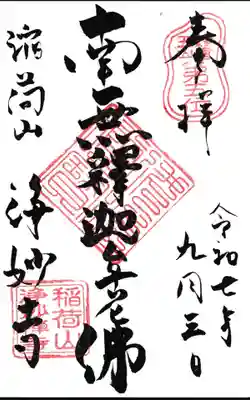 奉拝
令和七年
九月三日
南無釋迦牟尼佛
稲荷山
浄妙寺
稲荷山
浄妙寺